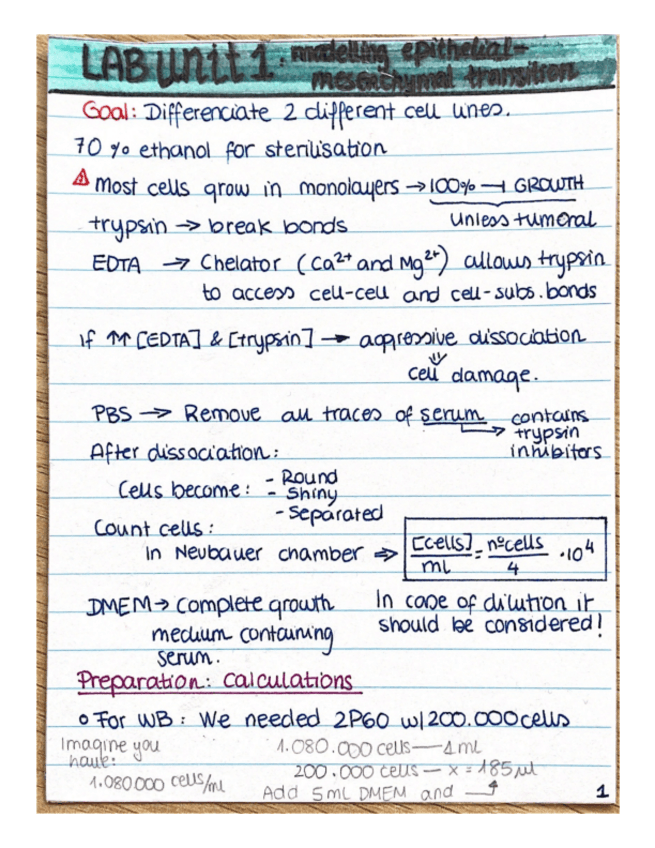 LAB UNIT 1: modelling epithelial-
mesenchymal transition
Goal: Differenciate 2 different cell lines.
70 % ethanol for sterilisation
⚠ Most cells grow in monolayers → 100% ⊣ GROWTH
trypsin → break bonds
unless tumoral
EDTA → Chelator (Ca²⁺ and Mg²⁺) allows trypsin
to access cell-cell and cell-subs. bonds
if ↑↑ [EDTA] & [trypsin] → aggressive dissociation
⇓
cell damage.
PBS → Remove all traces of serum → contains
trypsin
inhibitors
After dissociation:
Cells become: - Round
- Shiny
- Separated
Count cells:
in Neubauer chamber ⇒ [cells]/ml = nºcells/4 · 10⁴
DMEM → Complete growth
medium containing
serum.
In case of dilution it
should be considered!
Preparation: Calculations
o For WB: We needed 2P60 w/ 200.000 cells
Imagine you
have:
1.080.000 cells/ml
1.080.000 cells — 1mL
200.000 cells — x = 185 µl
Add 5mL DMEM and
1